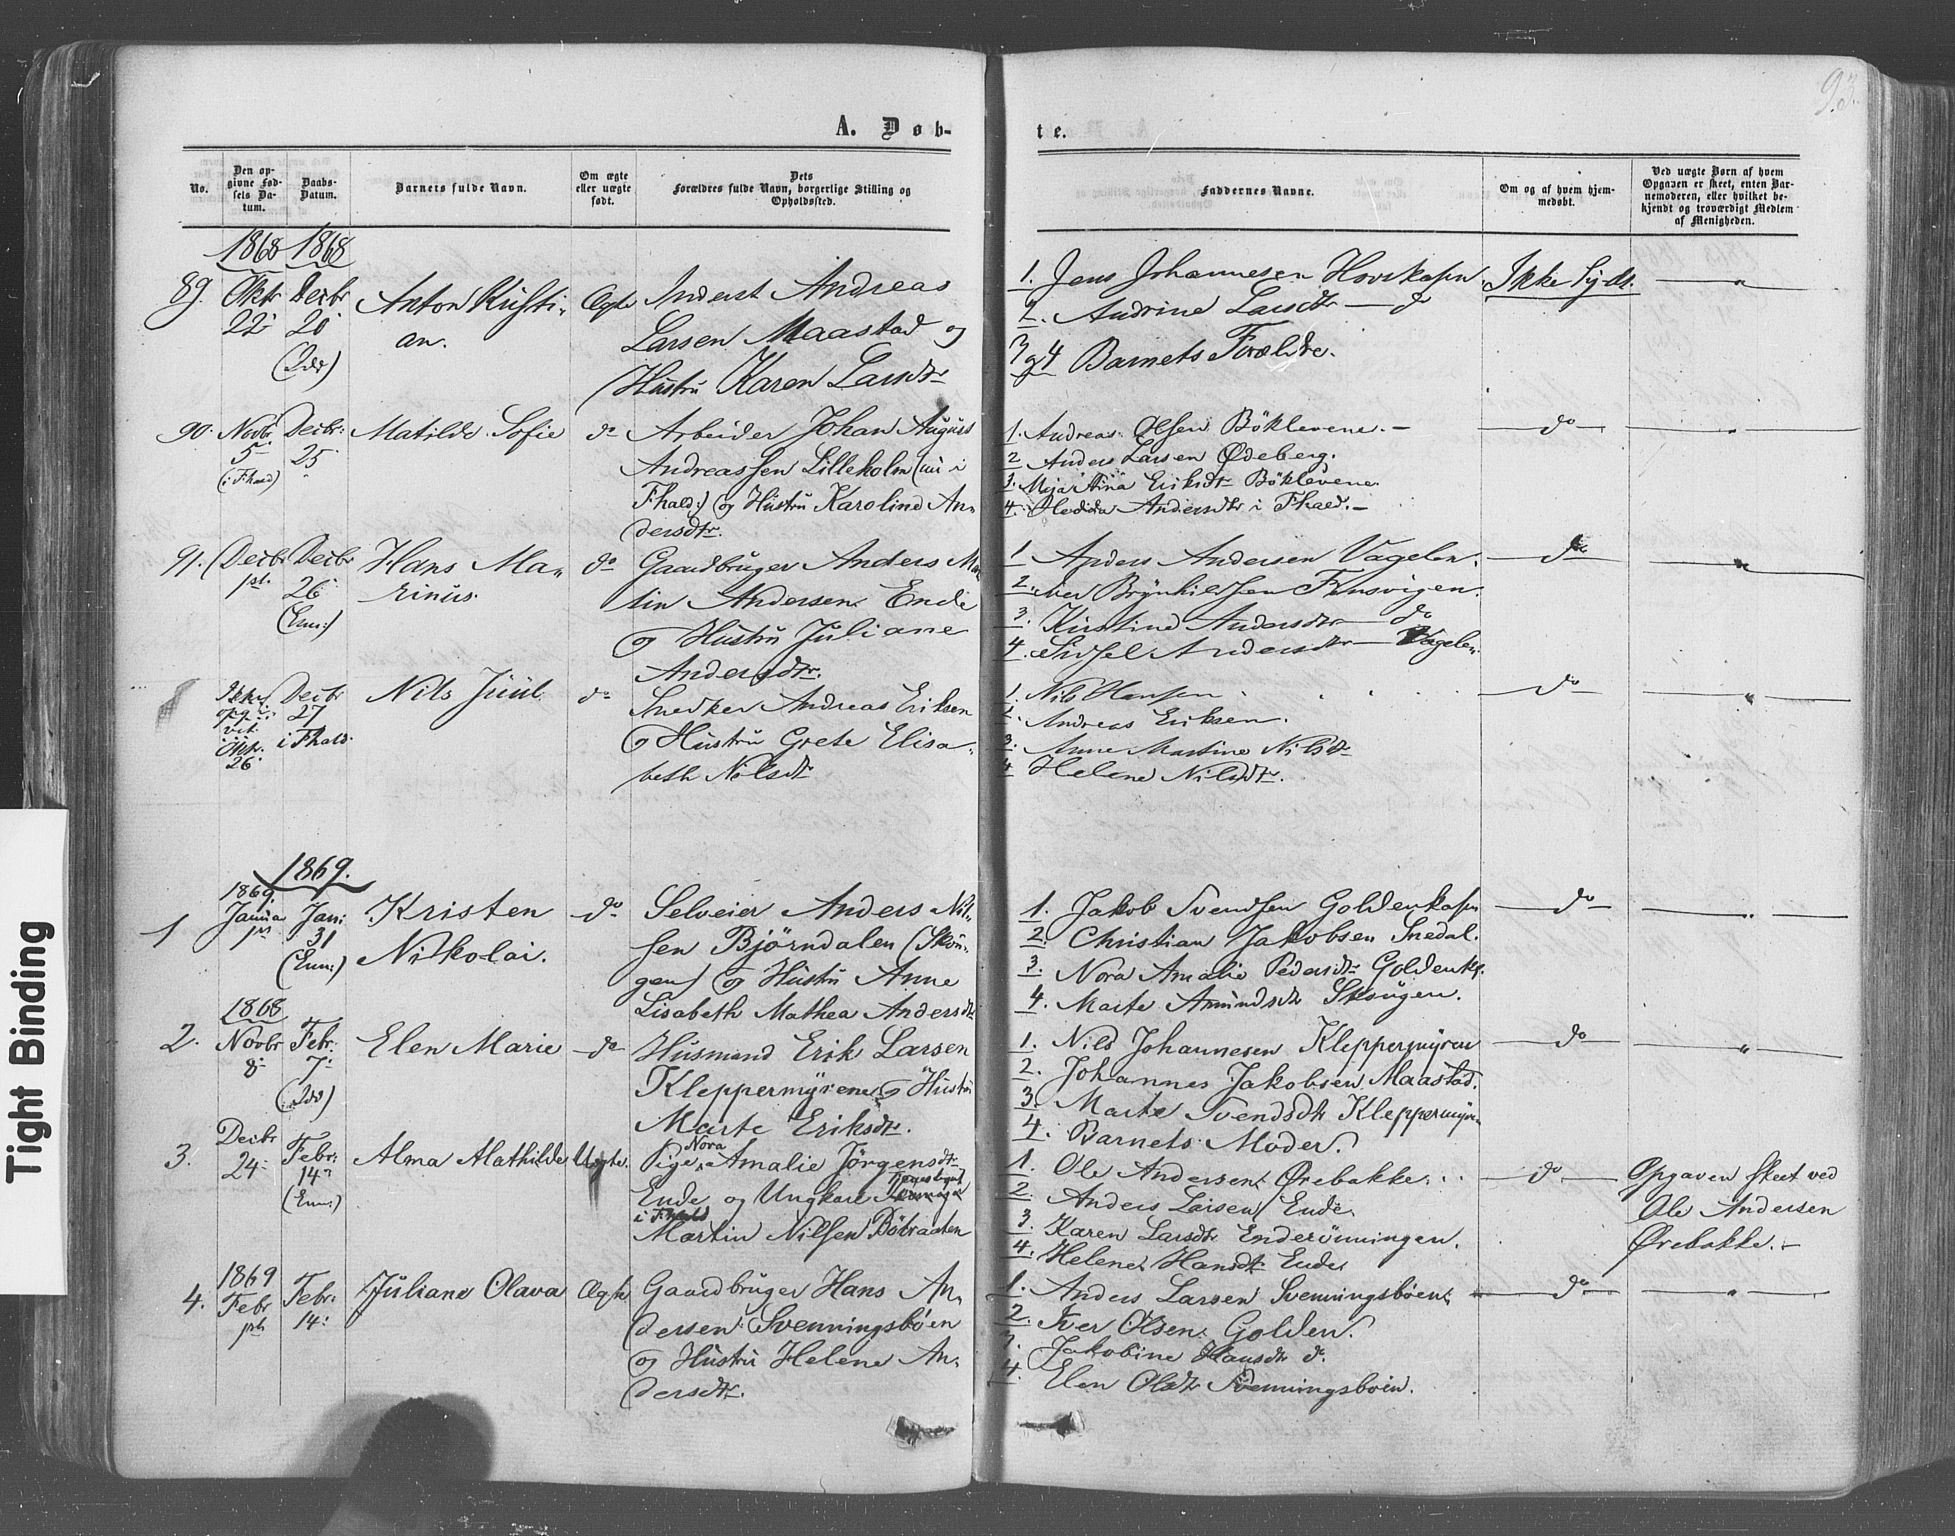 93.
A. Døb-
te.
No.
Den op-
givne Fød-
sels Da-
tum.
Daabs-
Datum.
Barnets fulde Navn.
Om ægte
eller uægte
født.
Dets
Forældres fulde Navn, borgerlige Stilling og
Opholdssted.
Faddernes Navne.
Om og af hvem hjem-
medøbt.
Ved uægte Børn af hvem
Opgaven er skeet, enten Bar-
nemoderen, eller hvilket be-
kjendt og troværdigt Medlem
af Menigheden.
1868 1868
89.
Oktr
22
Decbr
20
Anton Kristi-
an.
Ægte
Andreas
Larsen Maastad og
Hustru Karen Larsdtr
1. Jens Johannesen
2. Andrine Larsdtr — do
3 og 4 Barnets Forældre.
Ikke
"
90.
Novbr
5
(i Fhald)
Decbr:
25
Matilde Sofie
do
Arbeider Johan August
Andreassen Lilleholm (nu i
Fhald:) og Hustru Karoline An-
dersdtr.
1. Andreas Olsen Böklevene.
2 Anders Larsen Ødeberg.
3. Eriksdtr Böklevene
4. Andersdtr i Fhald.
do
"
91.
(Decbr
Decbr
26
(Enn:)
Hans Ma-
rinus.
do
Gaardbruger Anders Mar-
tin Andersen Ende
og Hustru Juliane
Andersdtr.
1 Anders Andersen Vagelen.
2.
3. Kirstine Andersdtr — do
4. Sidsel Andersdtr — Vagelen
do
"
Ikke
Oktr.
26
Decbr
27
i Fhald.
Nils Juul
do
Snedker Andreas Eriksen
og Hustru Grete Elisa-
beth Nilsdtr
1. Nils Hansen
2. Andreas Eriksen.
3. Anne Martine Nilsdtr
4 Helene Nilsdtr.
do
"
1869.
1
1869
Januar
Jan:
31
(Enn:)
Kristen
Nikolai.
do
Selveier Anders Nil-
sen Björndalen (Skou-
gen) og Hustru Anne
Lisabeth Mathea Andersdtr
1. Jakob Svendsen
2. Christian Jakobsen
3. Nora Amalie Pedersdtr
4. Marte Amundsdtr Skougen.
do
"
2.
1868
Novbr
8
Febr.
7
Elen Marie
do
Husmand Erik Larsen
Kleppermyrene og Hustru
Marte Eriksdtr.
1. Nils Johannesen Kleppermyren
2. Johannes Jakobsen Maastad.
3. Marte Svendsdtr Kleppermyren
4. Barnets Moder.
do
"
3.
Decbr
24
Febr:
14
(Enn:)
Alma Mathilde
Uægte.
Pige Nora Amalie Jörgensdtr
Ende og Ungkarl
i Fhald
Martin Nilsen
1. Ole Andersen Ørebakke.
2. Anders Larsen Ende.
3. Karen Larsdtr Enderönningen.
4. Helene Hansdtr Ende
do
Opgaven skeet ved
Ole Andersen
Ørebakke.
4.
1869
Febr
Febr:
14:
Juliane Olava
Ægte
Gaardbruger Hans An-
dersen Svenningsböen
og Hustru Helene An-
dersdtr.
1. Anders Larsen Svenningsböen
2. Iver Olsen Golden.
3. Jakobine Hansdtr do.
4. Elen Olsdtr Svenningsböen.
do
"
Tight Binding